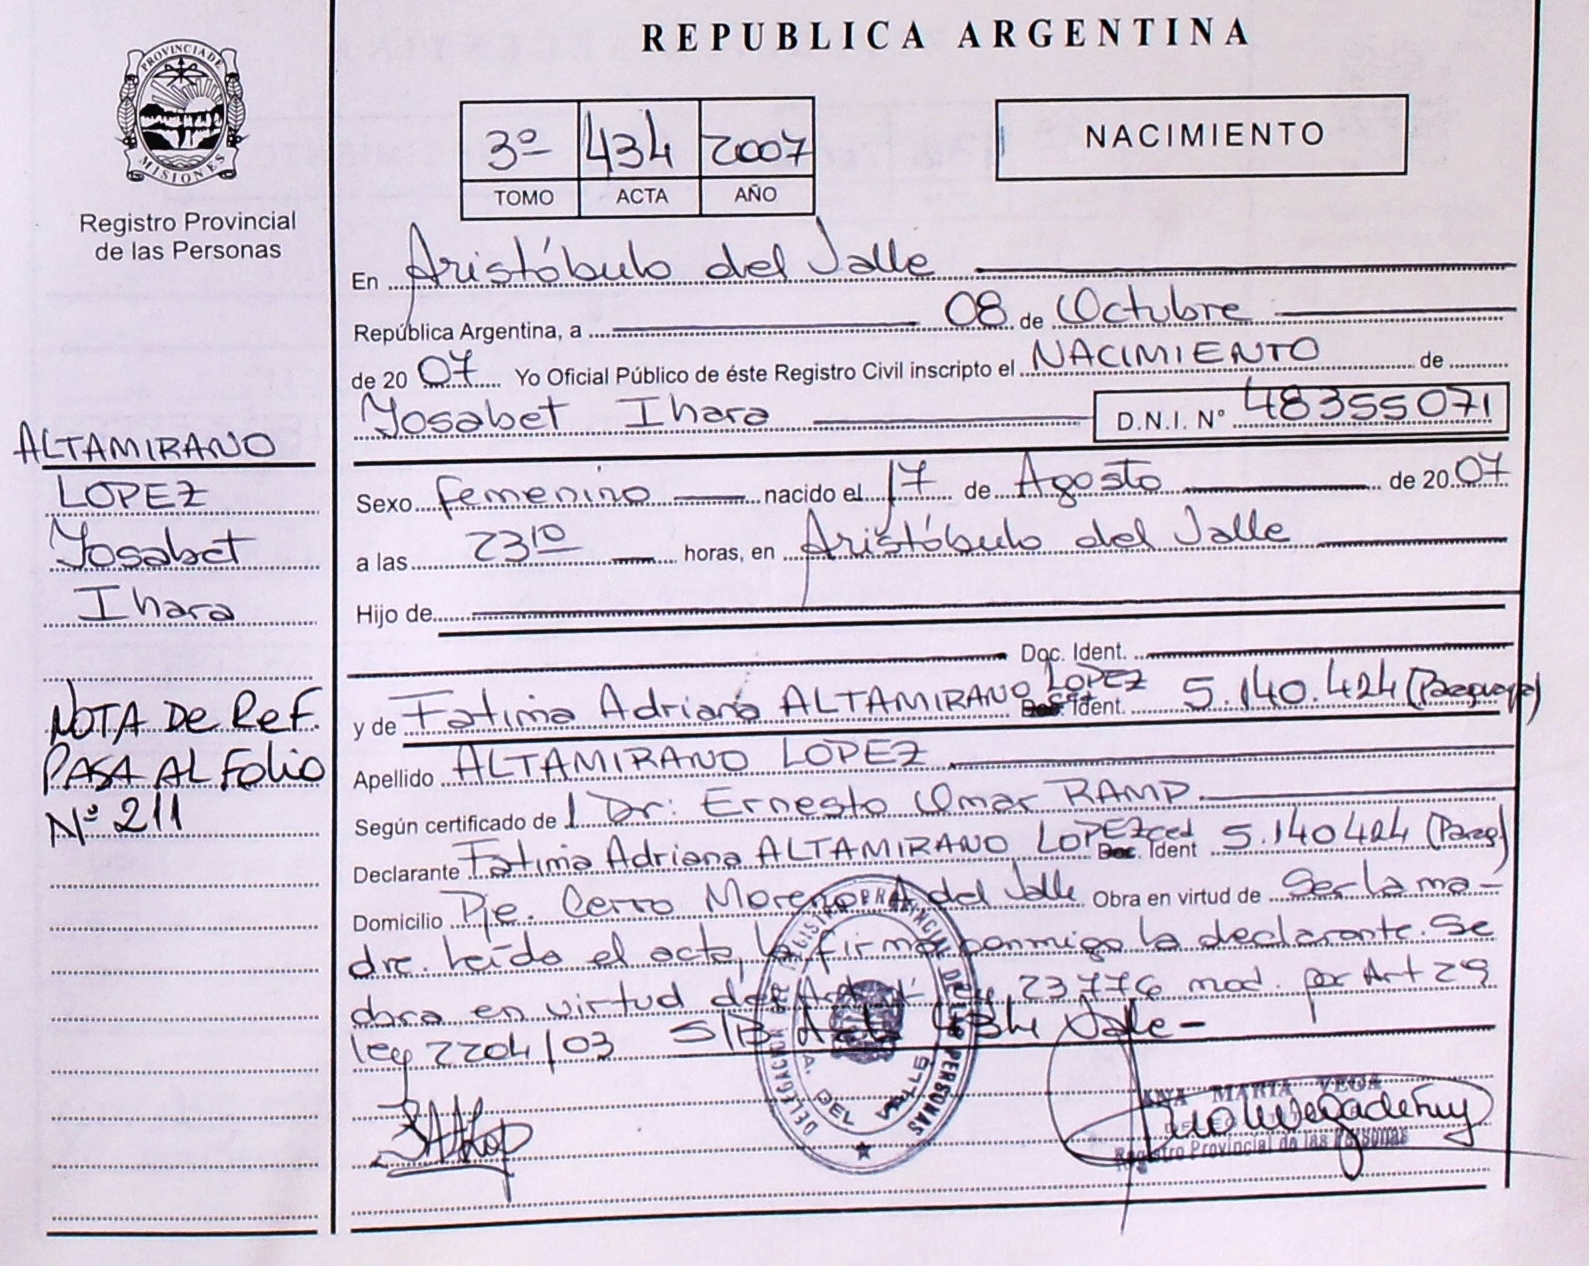 REPUBLICA ARGENTINA
PROVINCIA DE
MISIONES
Registro Provincial
de las Personas
3º 434 2007
TOMO ACTA AÑO
NACIMIENTO
En Aristóbulo del Valle
República Argentina, a 08 de Octubre
de 20 07 Yo Oficial Público de éste Registro Civil inscripto el NACIMIENTO de
Yosabet Ihara D.N.I. Nº 48355071
ALTAMIRANO
LOPEZ
Yosabet
Ihara
NOTA De ReF.
PASA AL Folio
Nº 211
Sexo femenino nacido el 17 de Agosto de 20 07
a las 23 10 horas, en Aristóbulo del Valle
Hijo de
Doc. Ident.
y de Fatima Adriana ALTAMIRANO LOPEZ Ident. 5.140.424 (Paraguaya)
Apellido ALTAMIRANO LOPEZ
Según certificado de l Dr: Ernesto Omar RAMP
Declarante Fatima Adriana ALTAMIRANO LOPEZ ced Doc. Ident 5.140424 (Parag)
Domicilio Pje. Cerro Moreno A del Valle Obra en virtud de Ser la ma-
dre. Leído el acta, la firma conmigo la declarante. Se
obra en virtud del Art 1 Ley 23776 mod. por Art 29
ley 2204/03 S/B Acta 434 Vale-
DELEGACION REGISTRO PROVINCIAL DE LAS PERSONAS
A. DEL VALLE
ANA MARIA VEGA
Registro Provincial de las Personas